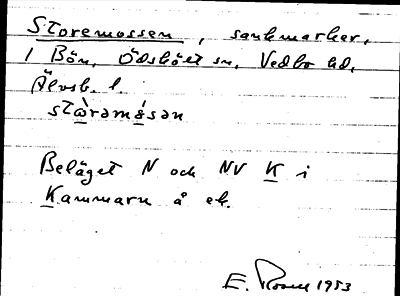 Storemossen, sankmarker,
i Bön, Ödskölt sn, Vedbo hd,
Älvsb. l.
stὼrəmǻsən
Beläget N och NV K i
Kammarn å ek.
E. Rosell 1953